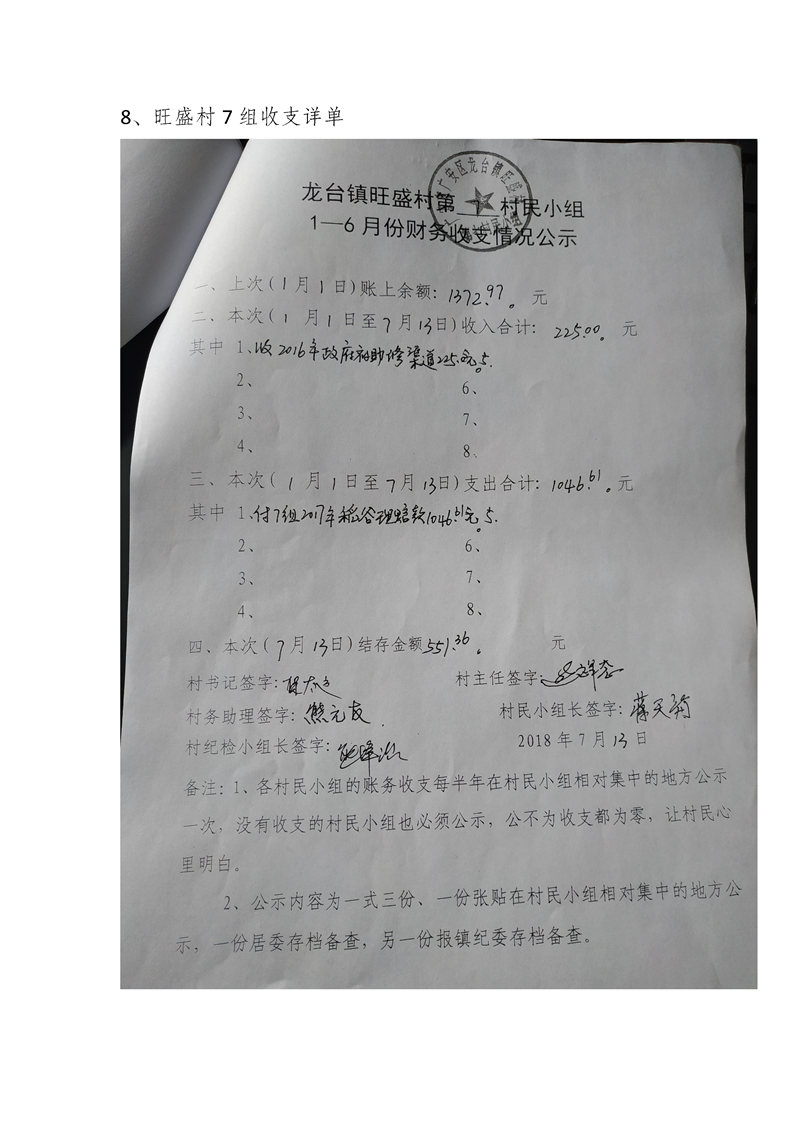 8、旺盛村 7 组收支详单
龙台镇旺盛村第 七 村民小组
1—6 月份财务收支情况公示
一、上次(1月1日)账上余额: 1372.97。元
二、本次(1月1日至7月13日)收入合计: 225.00。元
其中 1、收2016年政府补助修渠道225.00元。
2、 6、
3、 7、
4、 8、
三、本次(1月1日至7月13日)支出合计: 1046.61。元
其中 1、付7组2017年稻谷理赔款1046.61元。
2、 6、
3、 7、
4、 8、
四、本次(7月13日)结存金额551.36。元
村书记签字: 村主任签字:
村务助理签字: 熊元友 村民小组长签字:
村纪检小组长签字: 2018年7月13日
备注:1、各村民小组的账务收支每半年在村民小组相对集中的地方公示
一次,没有收支的村民小组也必须公示,公不为收支都为零,让村民心
里明白。
2、公示内容为一式三份、一份张贴在村民小组相对集中的地方公
示,一份居委存档备查,另一份报镇纪委存档备查。